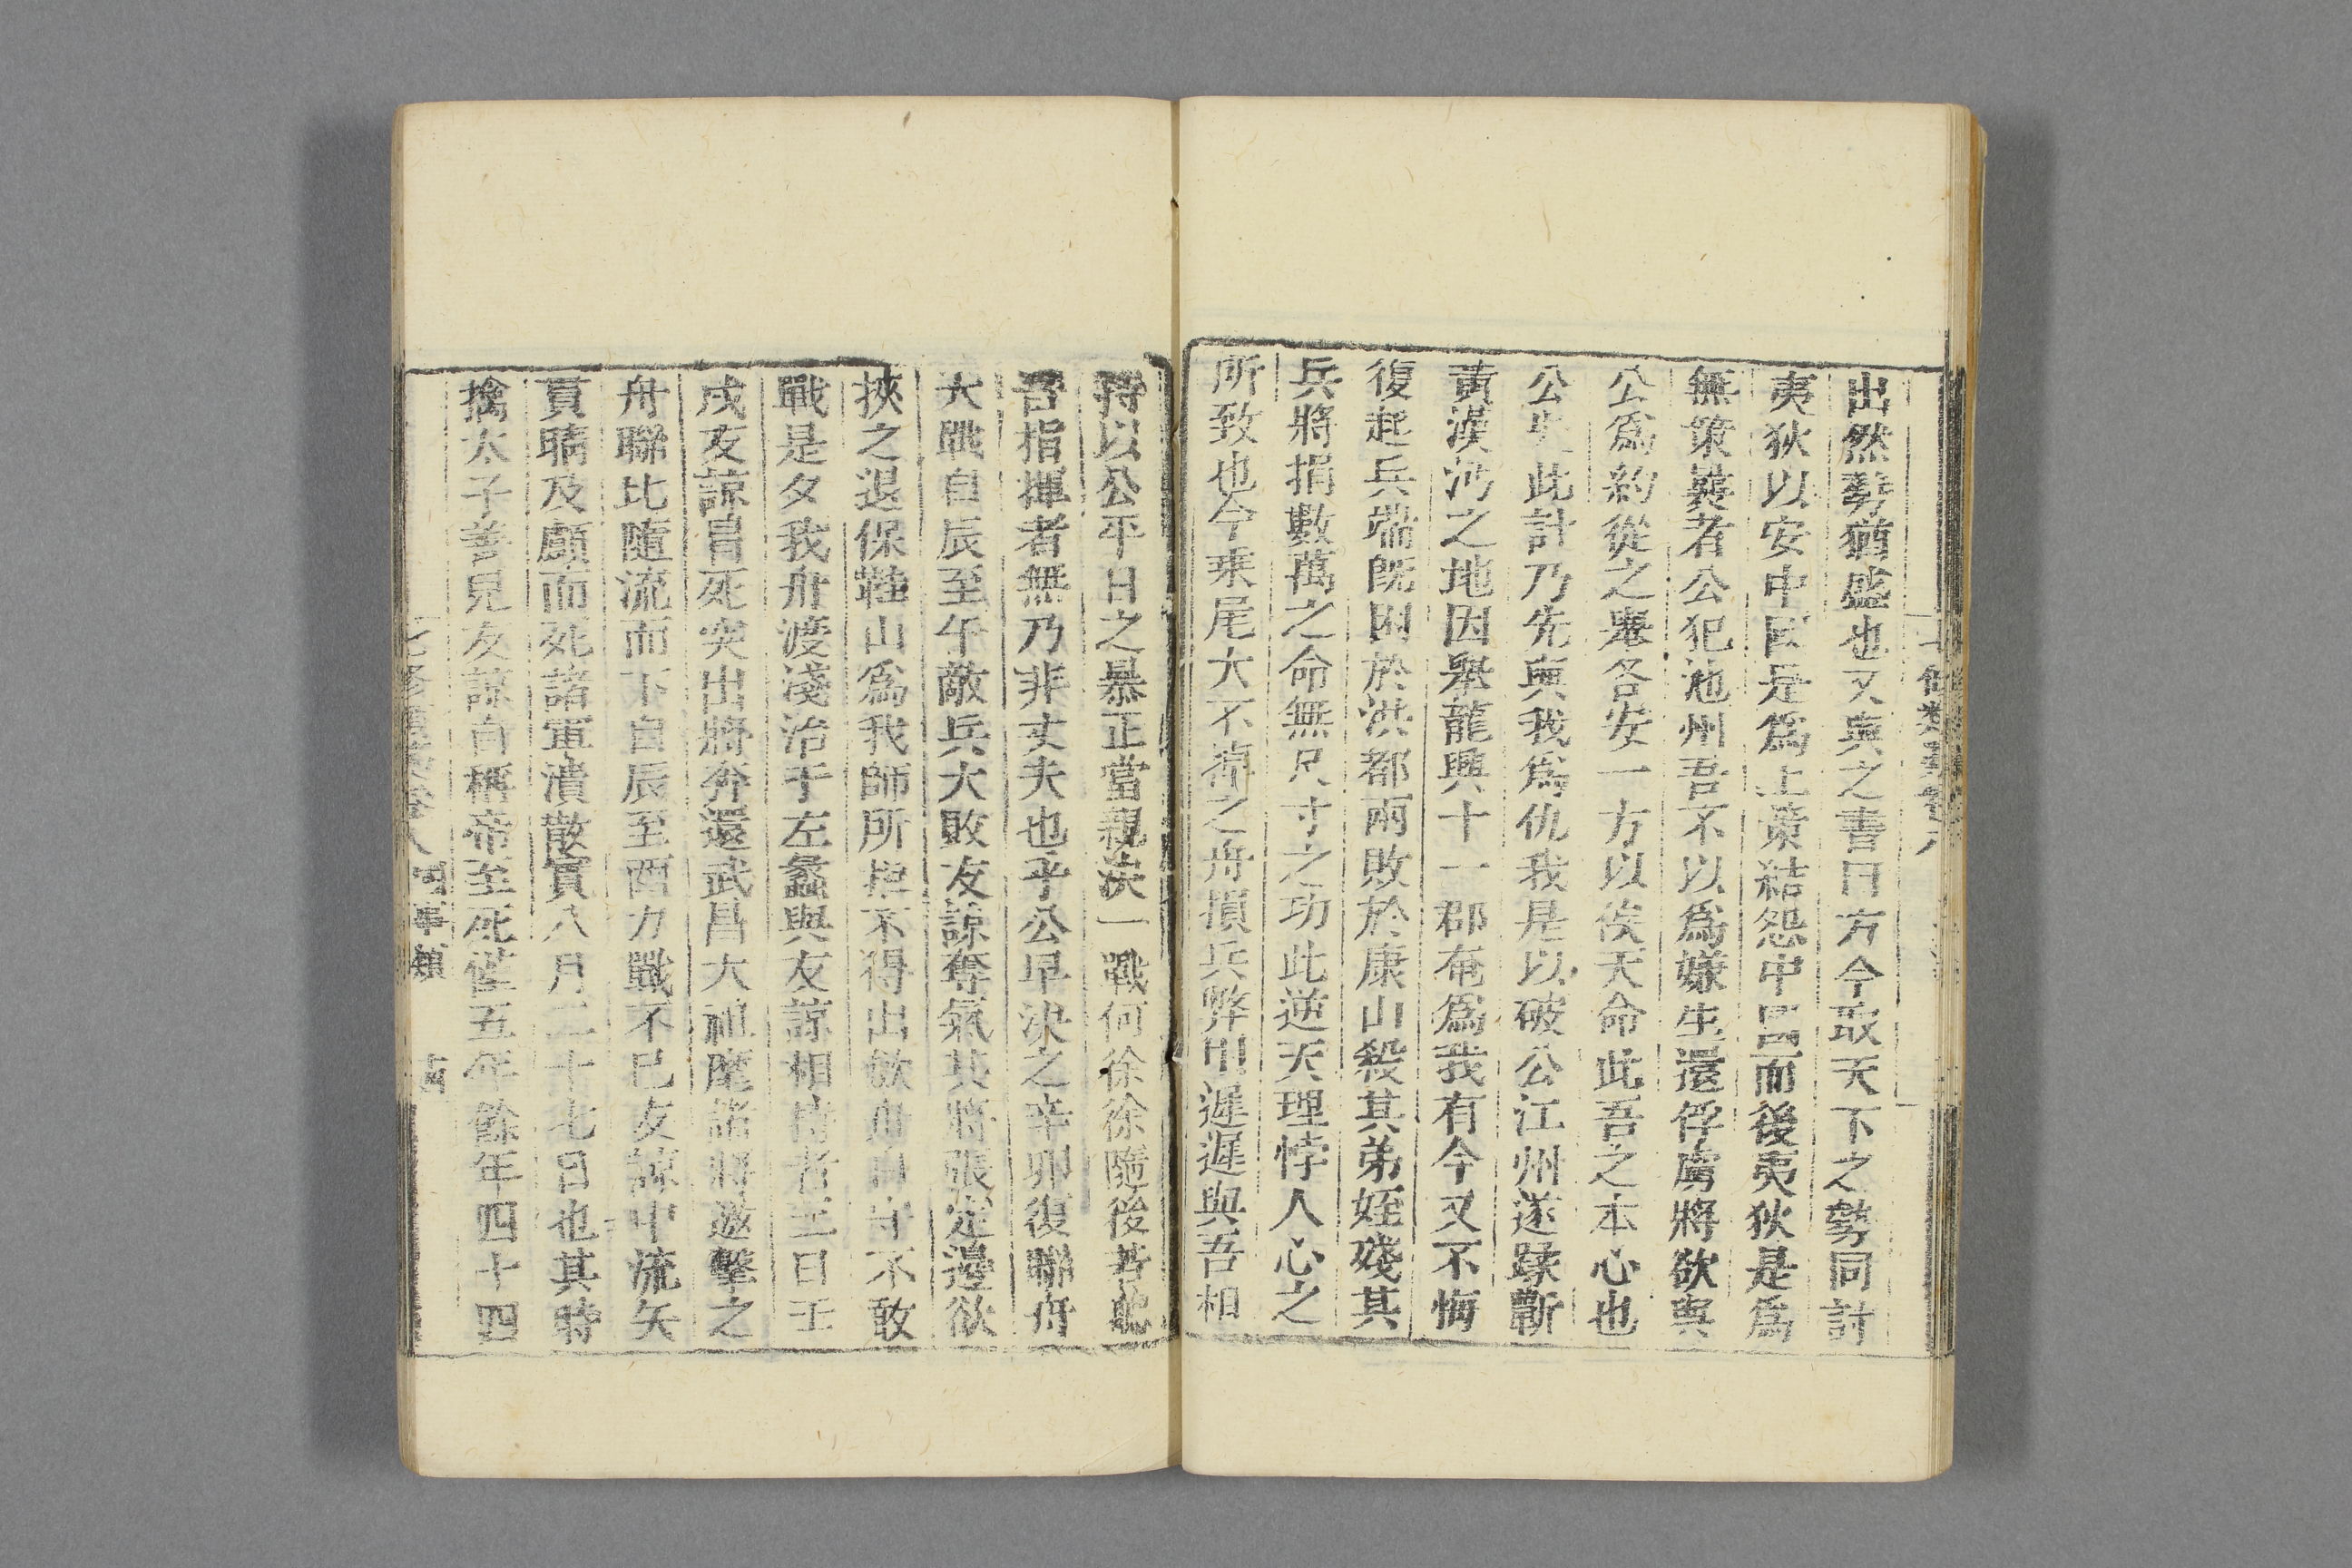 出然勢猶盛也又與之書曰方今取天下之勢同討
夷狄以安中國是爲上策結怨中國而後夷狄是爲
無策曩者公犯池州吾不以爲嫌生還俘虜將欲與
公爲約從之舉各安一方以俟天命此吾之本心也
公失此計乃先與我爲仇我是以破公江州遂蹂蘄
黃漢沔之地因舉龍興十一郡奄爲我有今又不悔
復起兵端旣困於洪都兩敗於康山殺其弟姪殘其
兵將捐數萬之命無尺寸之功此逆天理悖人心之
所致也今乘尾大不掉之舟損兵弊甲遲遲與吾相
持以公平日之暴正當親決一戰何徐徐隨後若聽
吾指揮者無乃非丈夫也乎公早決之辛卯復聯舟
大戰自辰至午敵兵大敗友諒奪氣其將張定邊欲
挾之退保鞋山爲我師所扼不得出斂舟自守不敢
戰是夕我舟渡淺泊于左蠡與友諒相持者三日壬
戌友諒冒死突出將奔還武昌大祖麾諸將邀擊之
舟聯比隨流而下自辰至酉力戰不已友諒中流矢
貫睛及顱而死諸軍潰散實八月二十七日也其時
擒太子善兒友諒自稱帝至死僅五年餘年四十四
七修類藁卷八 國事類